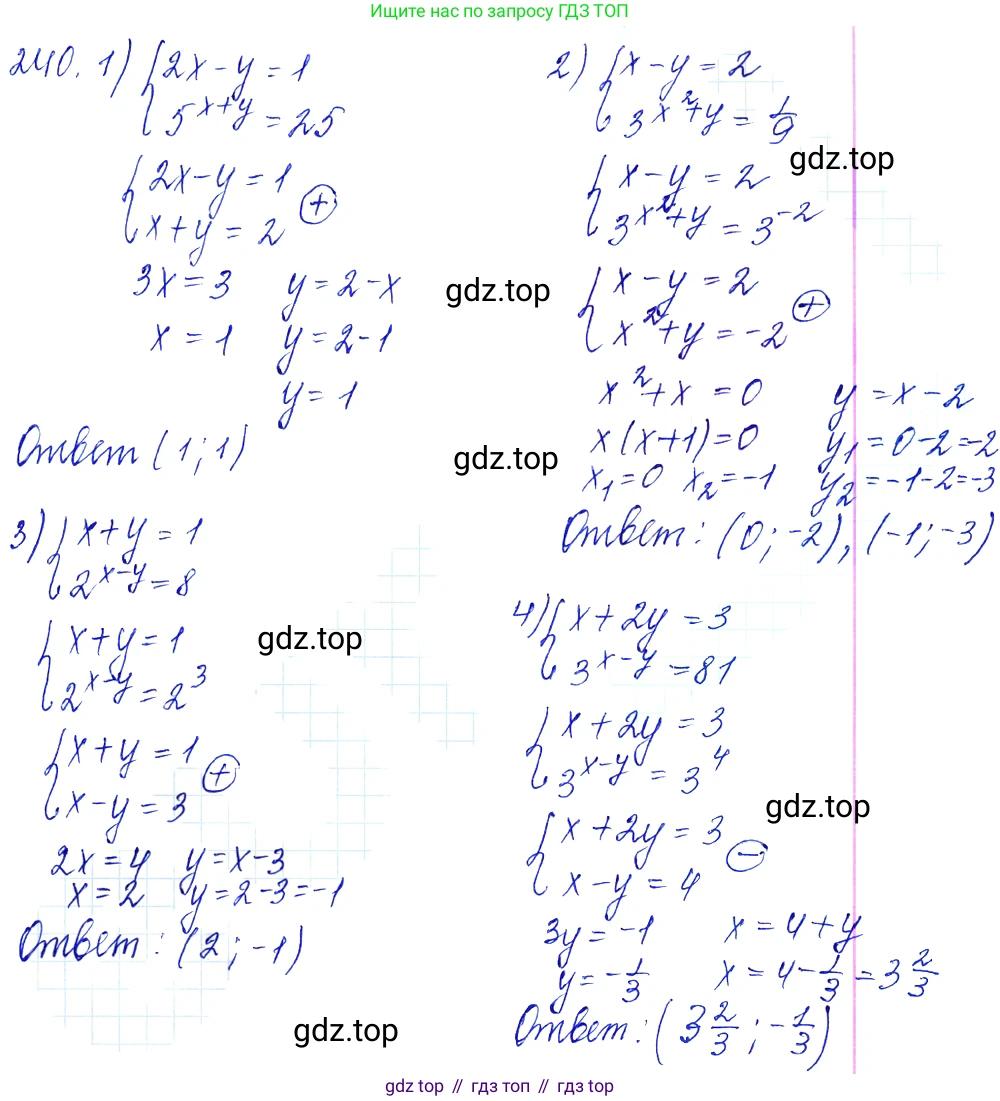 Ищите нас по запросу ГДЗ ТОП
240. 1) { 2x - y = 1
5^(x+y) = 25
{ 2x - y = 1
x + y = 2 (+)
3x = 3 y = 2 - x
x = 1 y = 2 - 1
y = 1
Ответ (1; 1)
2) { x - y = 2
3^(x²+y) = 1/9
{ x - y = 2
3^(x²+y) = 3^(-2)
{ x - y = 2
x² + y = -2 (+)
x² + x = 0 y = x - 2
x(x+1) = 0 y₁ = 0 - 2 = -2
x₁ = 0 x₂ = -1 y₂ = -1 - 2 = -3
Ответ: (0; -2), (-1; -3)
3) { x + y = 1
2^(x-y) = 8
{ x + y = 1
2^(x-y) = 2³
{ x + y = 1
x - y = 3 (+)
2x = 4 y = x - 3
x = 2 y = 2 - 3 = -1
Ответ: (2; -1)
4) { x + 2y = 3
3^(x-y) = 81
{ x + 2y = 3
3^(x-y) = 3⁴
{ x + 2y = 3
x - y = 4 (-)
3y = -1 x = 4 + y
y = -1/3 x = 4 - 1/3 = 3 2/3
Ответ: (3 2/3; -1/3)
gdz.top
gdz.top
gdz.top
gdz.top
gdz.top
gdz.top
gdz top // гдз топ // gdz top